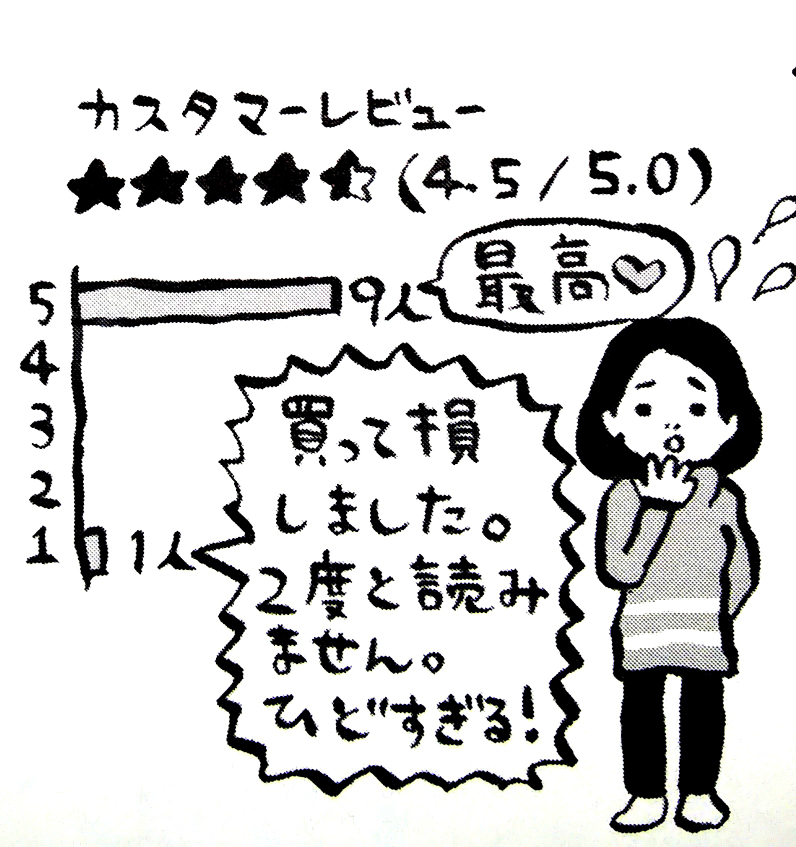 カスタマーレビュー
★★★★⯪(4.5/5.0)
5 9人 最高♡
4
3
2
1 1人
買って損
しました。
2度と読み
ません。
ひどすぎる!